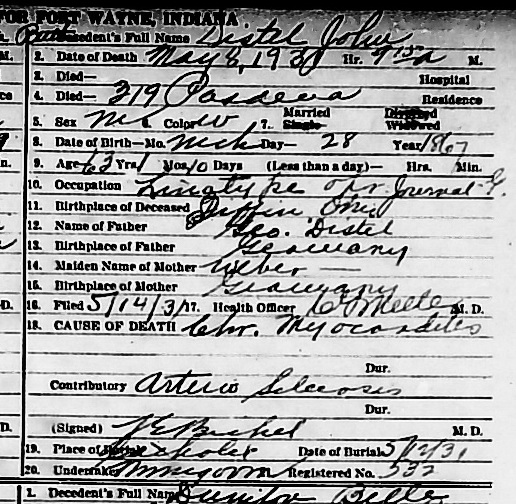 FOR FORT WAYNE, INDIANA
Decedent's Full Name Distel John
2. Date of Death May 8, 1931 Hr. 9 15 a M.
3. Died— Hospital
4. Died— 319 Pasadena Residence
5. Sex M 6. Color W 7. Married Single Divorced Widowed
8. Date of Birth—Mo. Mch Day— 28 Year 1867
9. Age 63 Yrs. 1 Mos. 10 Days (Less than a day)— Hrs. Min.
10. Occupation Linotype opr. Journal G.
11. Birthplace of Deceased Tiffin Ohio
12. Name of Father Geo. Distel
13. Birthplace of Father Germany
14. Maiden Name of Mother Weber
15. Birthplace of Mother Germany
16. Filed 5/14/31 17. Health Officer M. D.
18. CAUSE OF DEATH Chr. Myocarditis
Dur.
Contributory Arterio Sclerosis
Dur.
(Signed) M. D.
19. Place of Burial Date of Burial 5/12/31
20. Undertaker Registered No. 532
1. Decedent's Full Name Belle